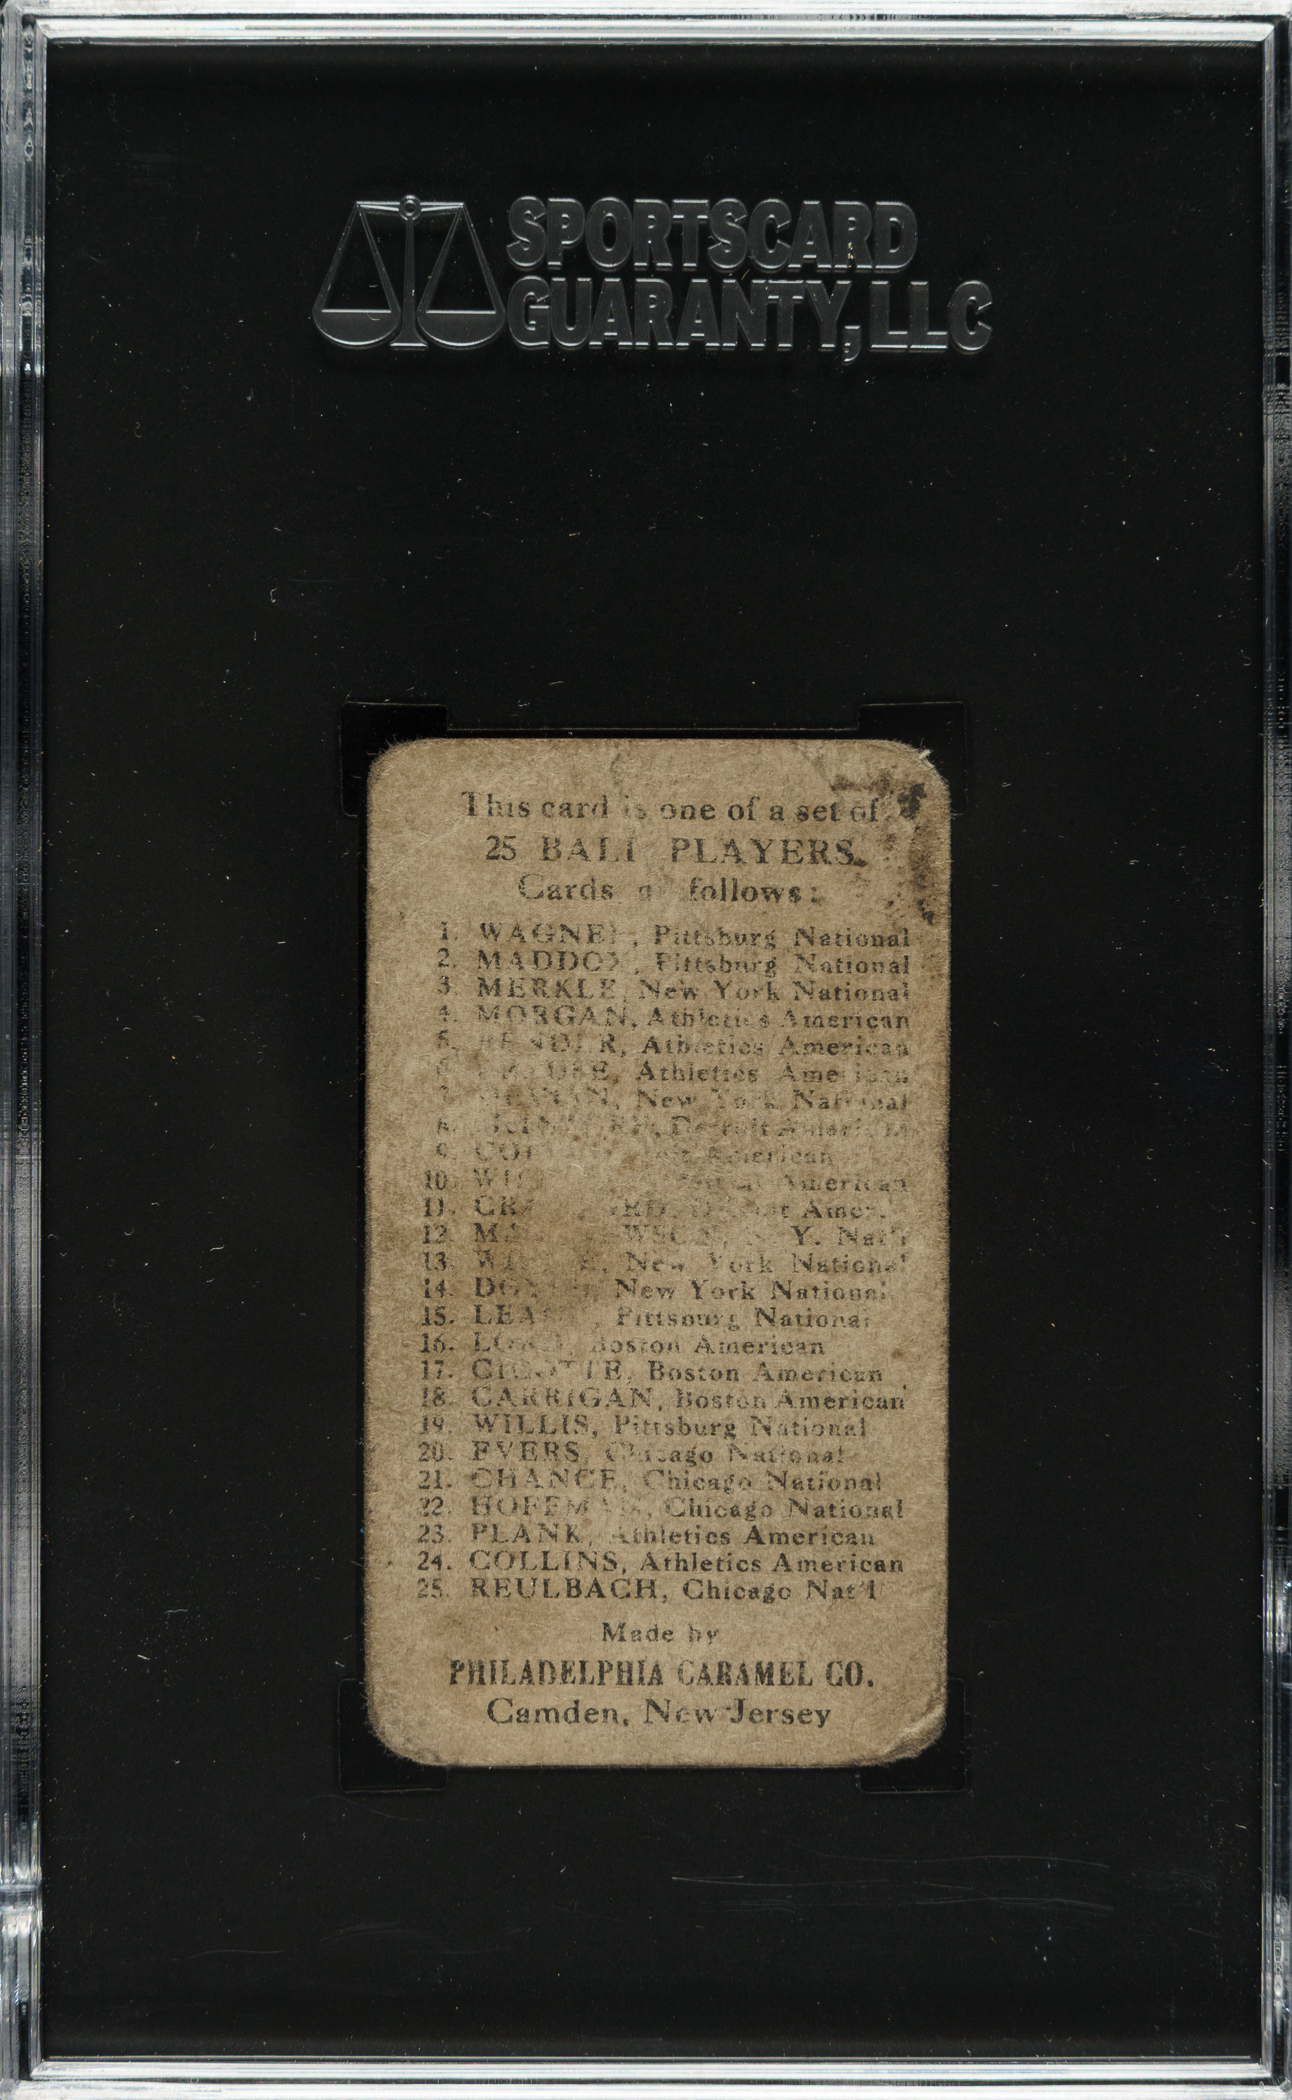 SPORTSCARD
GUARANTY, LLC
This card is one of a set of
25 BALL PLAYERS.
Cards as follows:
1. WAGNER, Pittsburg National
2. MADDOX, Pittsburg National
3. MERKLE, New York National
4. MORGAN, Athletics American
5. BENDER, Athletics American
6. Athletics American
7. New York National
8. Detroit American
9. American
10. American
11. CRAWFORD, Detroit Amer.
12. MATHEWSON, N. Y. Nat'l
13. New York National
14. DOYLE, New York National
15. LEACH, Pittsburg National
16. LORD, Boston American
17. CICOTTE, Boston American
18. CARRIGAN, Boston American
19. WILLIS, Pittsburg National
20. EVERS, Chicago National
21. CHANCE, Chicago National
22. HOFFMAN, Chicago National
23. PLANK, Athletics American
24. COLLINS, Athletics American
25. REULBACH, Chicago Nat'l
Made by
PHILADELPHIA CARAMEL CO.
Camden, New Jersey